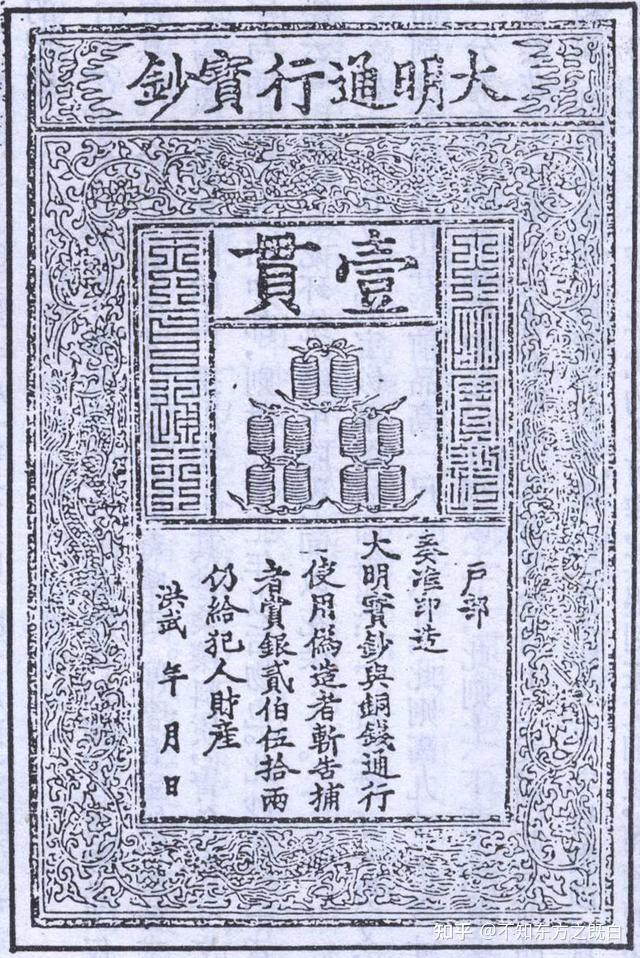 大明通行寶鈔
壹貫
戶部
奏准印造
大明寶鈔與銅錢通行
使用偽造者斬告捕
者賞銀貳伯伍拾兩
仍給犯人財産
洪武 年 月 日
知乎 @不知东方之既白